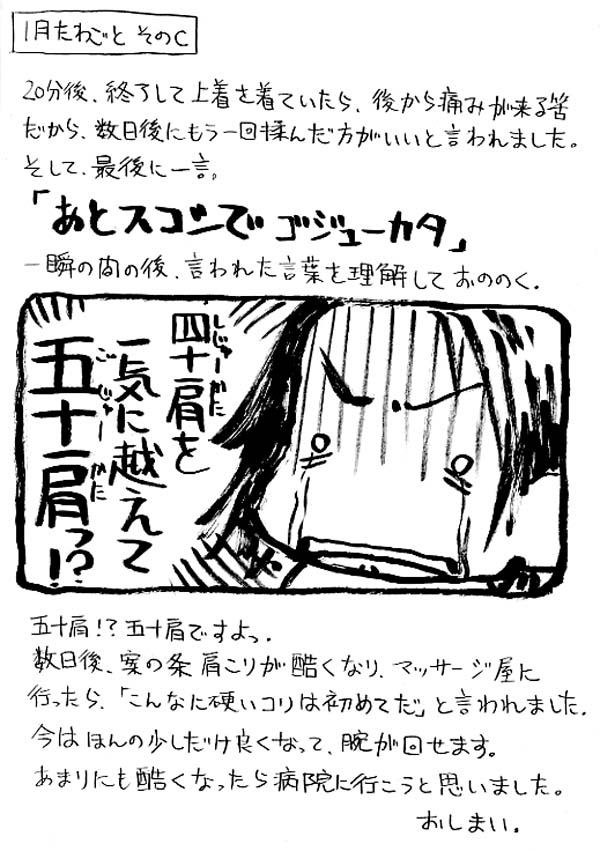 1月たわごと その C
20分後、終了して上着を着ていたら、後から痛みが来る筈
だから、数日後にもう一回揉んだ方がいいと言われました。
そして、最後に一言。
「あとスコシで ゴジューカタ」
一瞬の間の後、言われた言葉を理解して おののく.
四十肩を
しじゅーかた
一気に越えて
五十肩っ!?
ごじゅーかた
五十肩!? 五十肩ですよっ.
数日後、案の条 肩こりが酷くなり、マッサージ屋に
行ったら、「こんなに硬いコリは初めてだ」と言われました.
今は ほんの少しだけ良くなって、腕が回せます。
あまりにも酷くなったら病院に行こうと思いました。
おしまい.